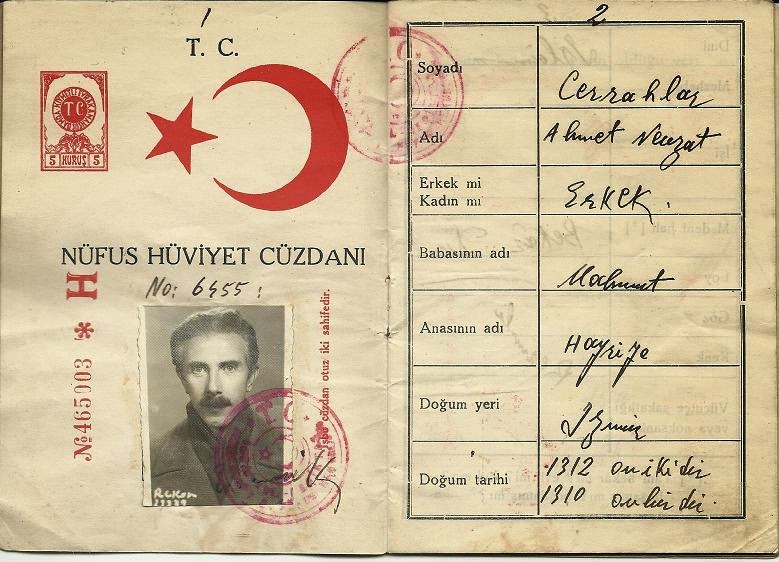 1
T. C.
T C
5 KURUŞ 5
NÜFUS HÜVİYET CÜZDANI
No: 6455
H
№465003
İşbu cüzdan otuz iki sahifedir.
T.C.
Rekor
2
Soyadı
Cerrahlar
Adı
Ahmet Nevzat
Erkek mi
Kadın mı
Erkek.
Babasının adı
Mahmut
Anasının adı
Hayriye
Doğum yeri
İzmir
Doğum tarihi
1312 on ikidir
1310 ondur.